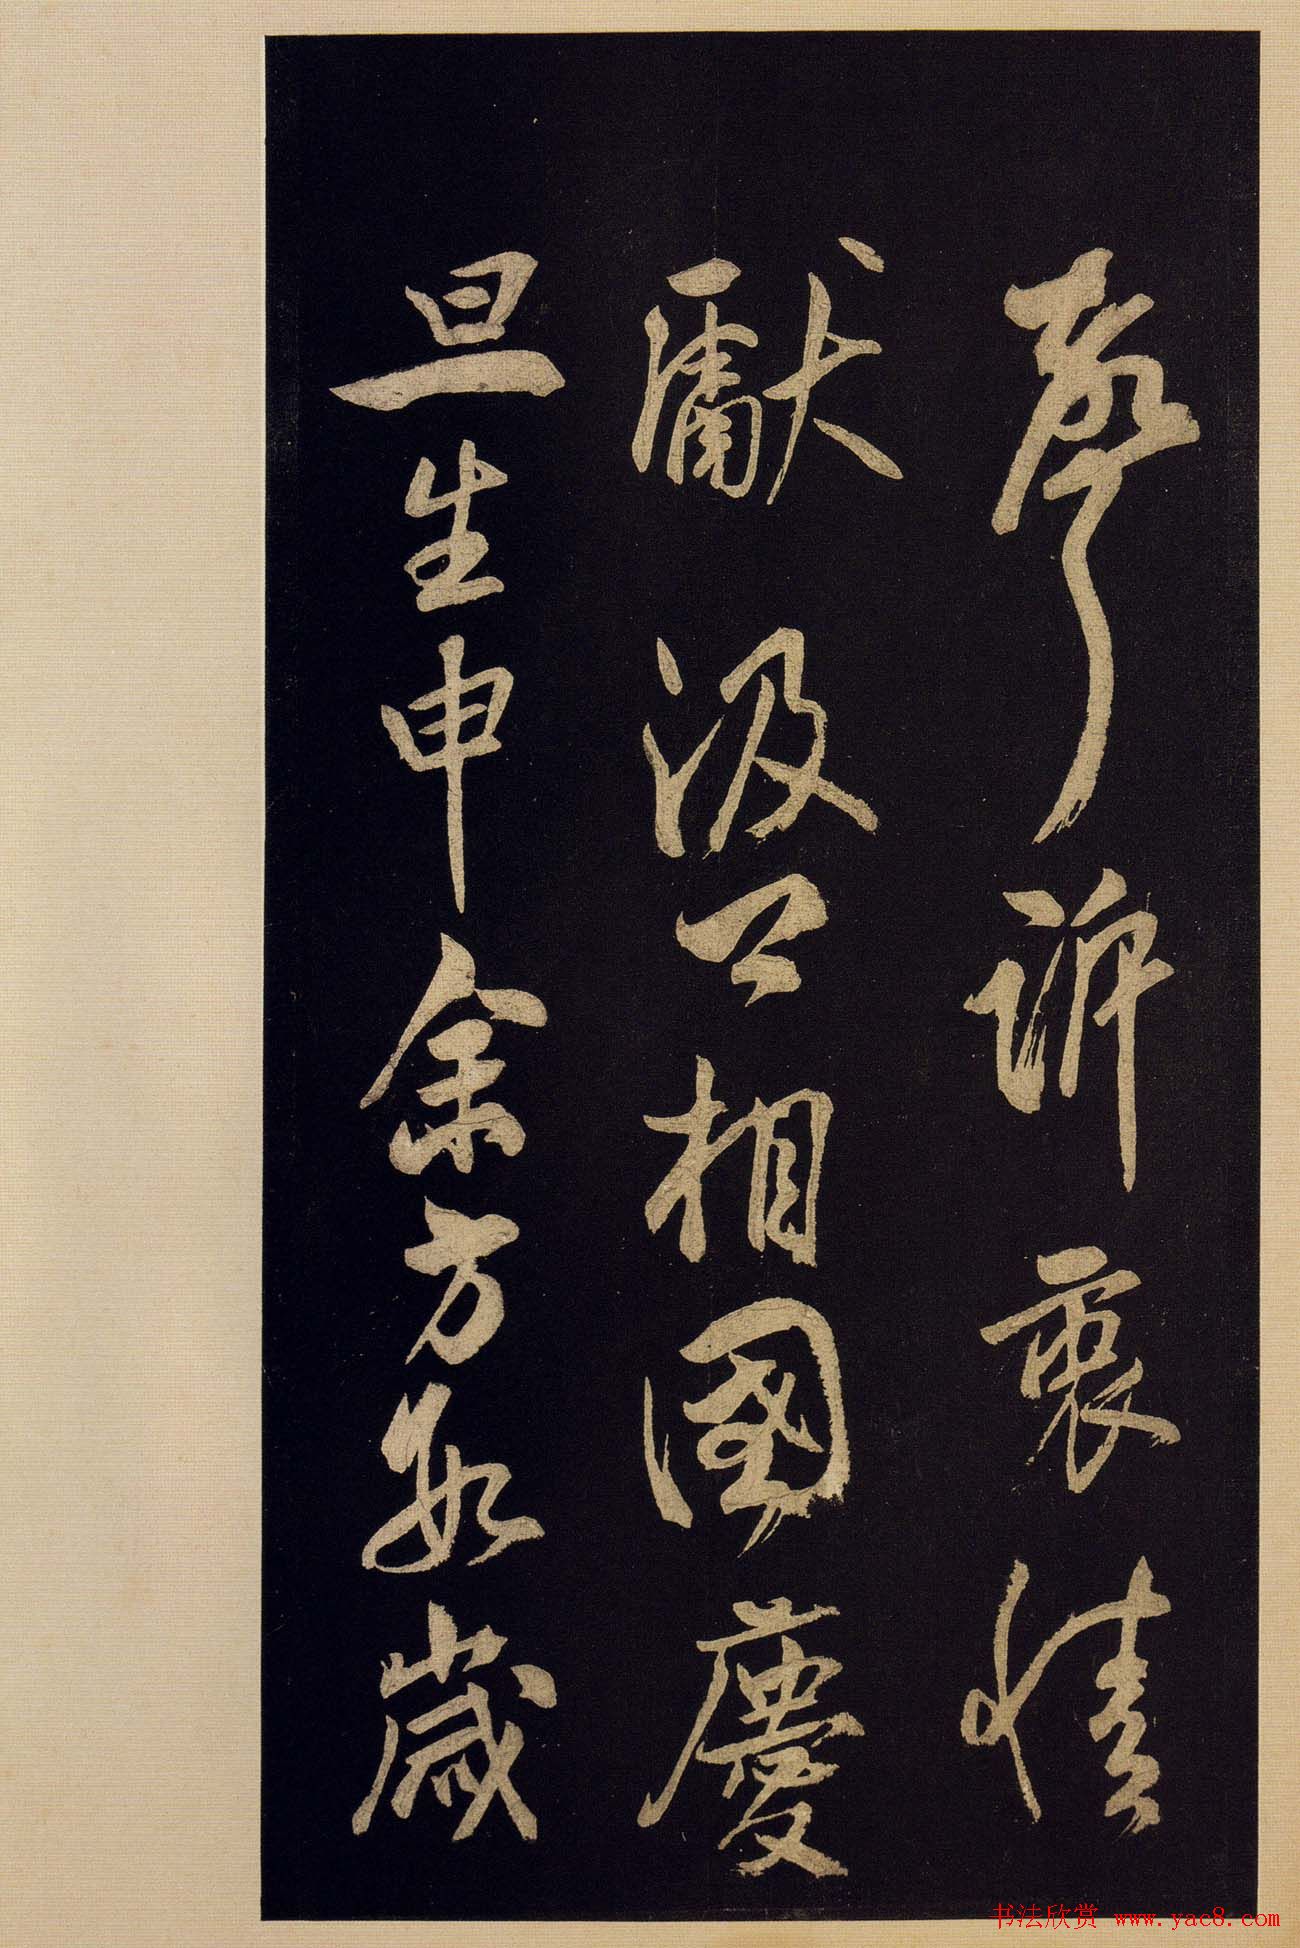 聲訴衷情
獻汲公相國慶
旦生申余方數歲
书法欣赏 www.yac8.com